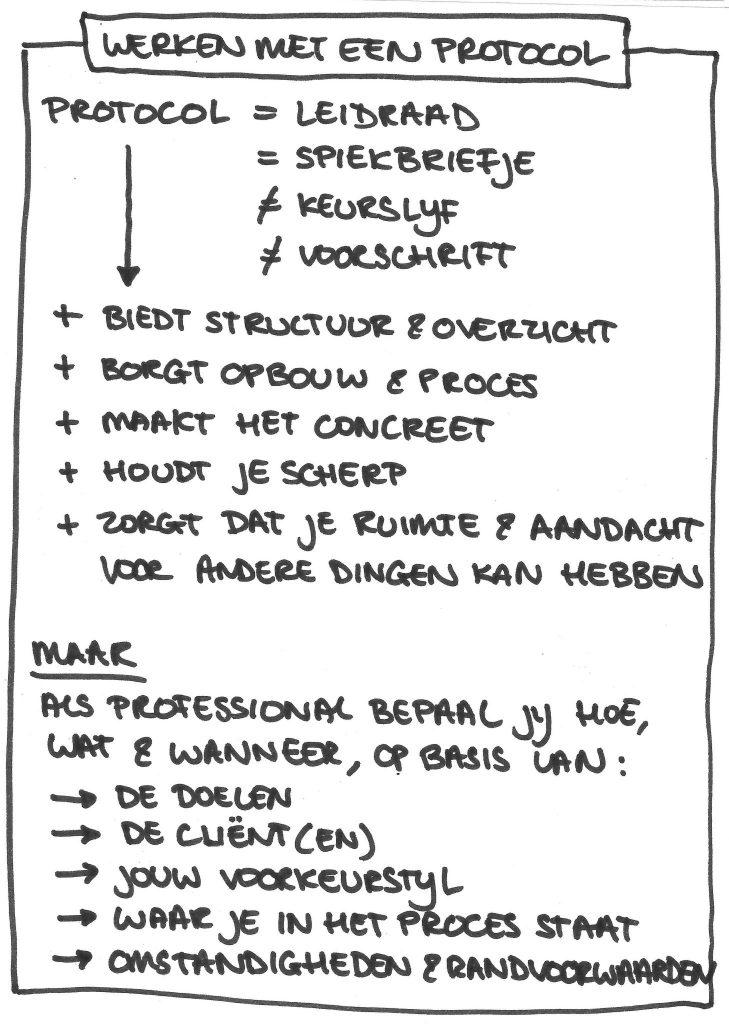 WERKEN MET EEN PROTOCOL
PROTOCOL = LEIDRAAD
= SPIEKBRIEFJE
≠ KEURSLYF
≠ VOORSCHRIFT
+ BIEDT STRUCTUUR & OVERZICHT
+ BORGT OPBOUW & PROCES
+ MAAKT HET CONCREET
+ HOUDT JE SCHERP
+ ZORGT DAT JE RUIMTE & AANDACHT
VOOR ANDERE DINGEN KAN HEBBEN
MAAR
ALS PROFESSIONAL BEPAAL JIJ HOE,
WAT & WANNEER, OP BASIS VAN:
→ DE DOELEN
→ DE CLIËNT(EN)
→ JOUW VOORKEURSTYL
→ WAAR JE IN HET PROCES STAAT
→ OMSTANDIGHEDEN & RANDVOORWAARDEN